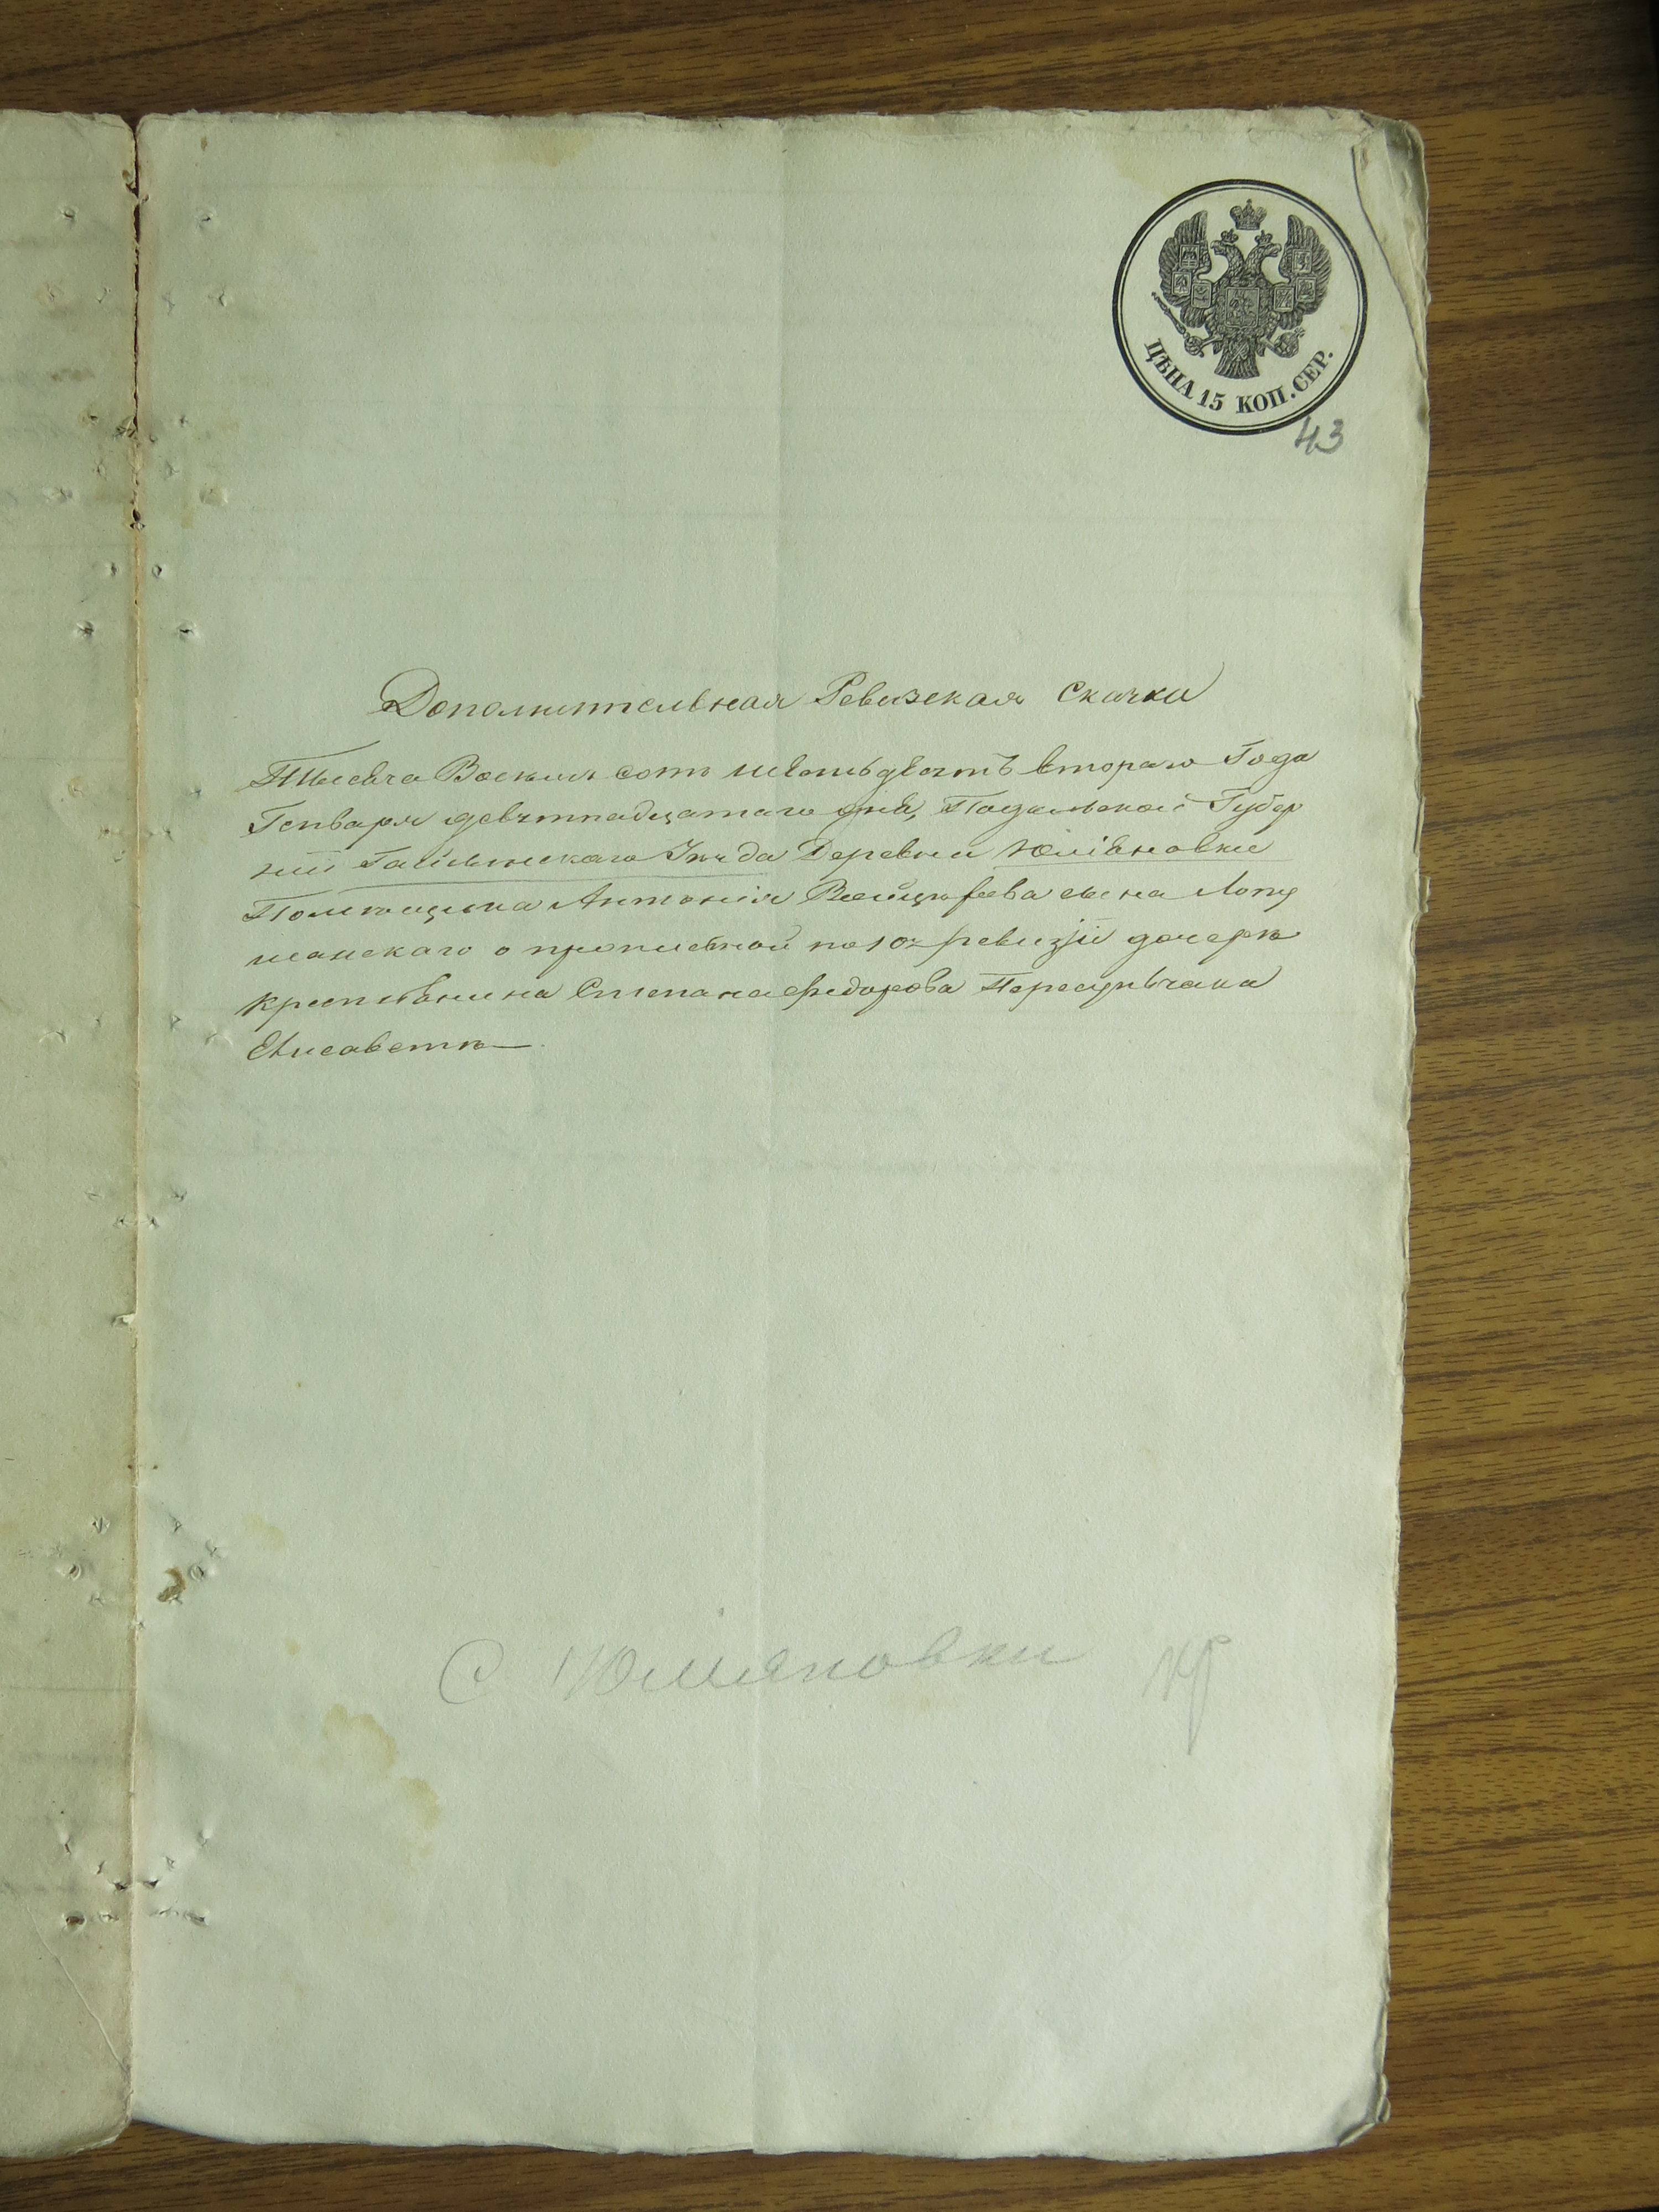 ЦѢНА 15 КОП. СЕР.
43
Дополнительная Ревизская Скачка
Тысяча Восемь сотъ шестьдесятъ втораго Года
Генваря девятнадцатаго дня, Подольской Губер
нии Гайсинскаго Уѣзда Деревни Юліяновки
Помѣщика Антонія сына
о прописной по 10й ревизіи дочерѣ
крестьянина Степана Федорова
Елисаветѣ
С Юлияновки